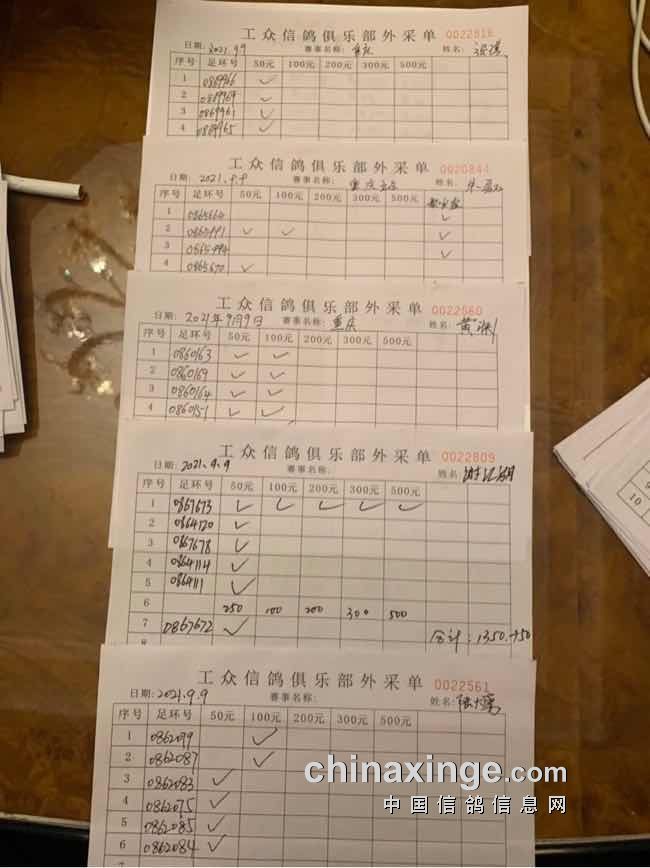 工众信鸽俱乐部外采单 0022816
日期: 2021.9.9 赛事名称: 重庆 姓名:
序号 足环号 50元 100元 200元 300元 500元
1 0869966 ✓
2 0869969 ✓
3 0869961 ✓
4 0869965 ✓
工众信鸽俱乐部外采单 0020844
日期: 2021.9.9 赛事名称: 重庆 姓名:
序号 足环号 50元 100元 200元 300元 500元
1 0865664 ✓
2 0865991 ✓ ✓ ✓
3 0865994 ✓
4 0865670 ✓
工众信鸽俱乐部外采单 0022560
日期: 2021年9月9日 赛事名称: 重庆 姓名: 黄
序号 足环号 50元 100元 200元 300元 500元
1 0860163 ✓ ✓
2 0860169 ✓ ✓
3 0860164 ✓ ✓
4 0860151 ✓ ✓
工众信鸽俱乐部外采单 0022809
日期: 2021.9.9 赛事名称: 姓名:
序号 足环号 50元 100元 200元 300元 500元
1 0867673 ✓ ✓ ✓ ✓ ✓
2 0864120 ✓
3 0867678 ✓
4 0864114 ✓
5 0864111 ✓
6 250 100 200 300 500
7 0867672 ✓ 合计: 1350.+50
8
工众信鸽俱乐部外采单 0022561
日期: 2021.9.9 赛事名称: 姓名:
序号 足环号 50元 100元 200元 300元 500元
1 0862099 ✓
2 0862087 ✓
3 0862083 ✓
4 0862075 ✓
5 0862085 ✓
6 0862084 ✓
7
9
10
chinaxinge.com
中国信鸽信息网